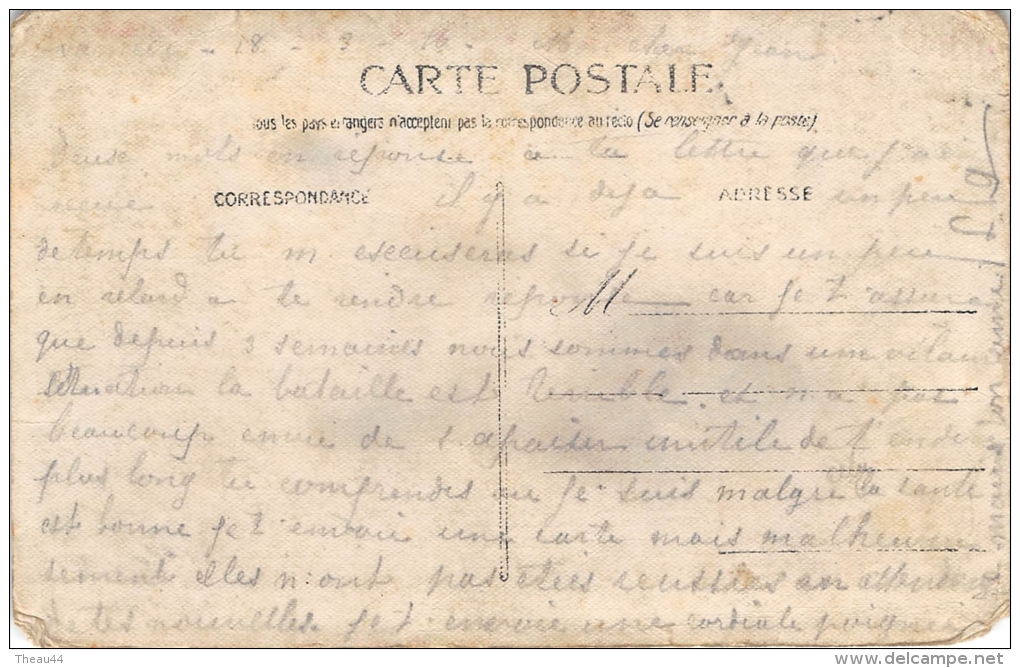 18 - 3 - 16. Mon cher Jean
CARTE POSTALE
Tous les pays étrangers n'acceptent pas la correspondance au recto (Se renseigner à la poste)
Deuse mots en réponse a ta lettre que j'ai
reçue il y a deja un peu
CORRESPONDANCE ADRESSE
de temps tu m escuseras si je suis un peu
en retard a te rendre reponse car je t assure
M
que depuis 3 semaines nous sommes dans une vilaine
situation la bataille est terrible. et n a pas
beaucoup envie de s apaiser inutile de t en dire
plus long tu comprendes ou je suis malgre la sante
est bonne je t envoie une carte mais malheureu
sement elles n ont pas etées reussies en attendant
de tes nouvelles. je t envoie une cordiale poignée
de mains ton ami
Theau44
delcampe.net